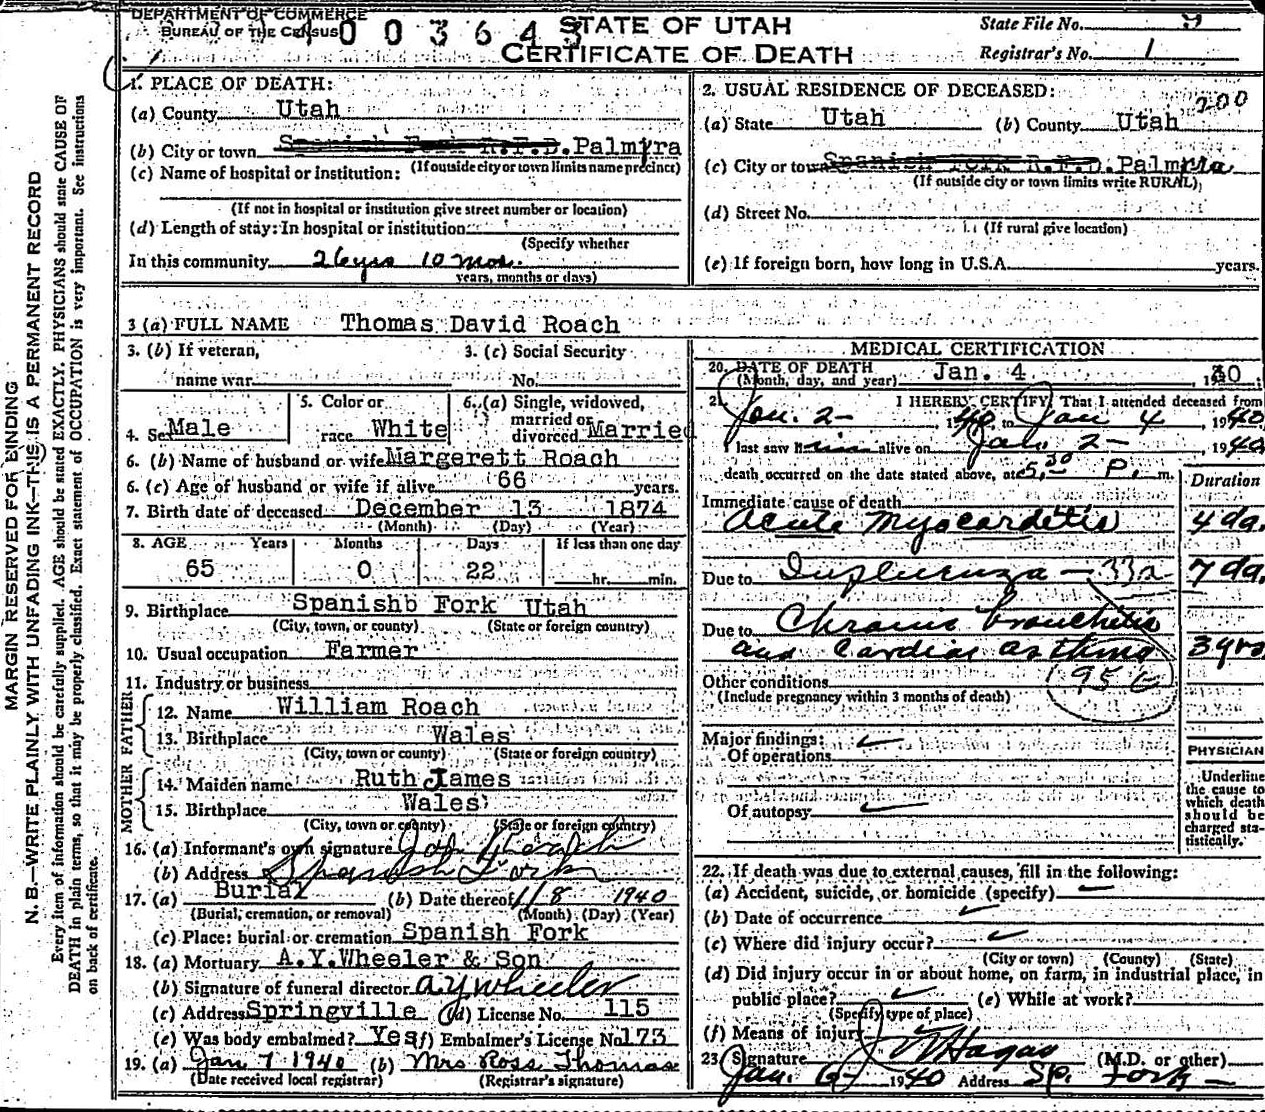 DEPARTMENT OF COMMERCE
BUREAU OF THE CENSUS
STATE OF UTAH
CERTIFICATE OF DEATH
State File No. 9
Registrar's No. 1
MARGIN RESERVED FOR BINDING
N. B.—WRITE PLAINLY WITH UNFADING INK—THIS IS A PERMANENT RECORD
Every item of information should be carefully supplied. AGE should be stated EXACTLY. PHYSICIANS should state CAUSE OF
DEATH in plain terms, so that it may be properly classified. Exact statement of OCCUPATION is very important. See instructions
on back of certificate.
1. PLACE OF DEATH:
(a) County Utah
(b) City or town Spanish Fork R.F.D. Palmyra
(If outside city or town limits name precinct)
(c) Name of hospital or Institution:
(If not in hospital or institution give street number or location)
(d) Length of stay: In hospital or institution
(Specify whether
In this community 26 yrs 10 mos.
years, months or days)
2. USUAL RESIDENCE OF DECEASED:
200
(a) State Utah (b) County Utah
(c) City or town Spanish Fork R.F.D. Palmyra
(If outside city or town limits write RURAL)
(d) Street No.
(If rural give location)
(e) If foreign born, how long in U.S.A. years.
3 (a) FULL NAME Thomas David Roach
3. (b) If veteran,
name war
3. (c) Social Security
No.
4. Sex Male
5. Color or
race White
6. (a) Single, widowed,
married or
divorced Married
6. (b) Name of husband or wife Margerett Roach
6. (c) Age of husband or wife if alive 66 years.
7. Birth date of deceased December 13 1874
(Month) (Day) (Year)
8. AGE Years Months Days If less than one day
65 0 22 hr. min.
9. Birthplace Spanishb Fork Utah
(City, town, or county) (State or foreign country)
10. Usual occupation Farmer
11. Industry or business
FATHER
12. Name William Roach
13. Birthplace Wales
(City, town or county) (State or foreign country)
MOTHER
14. Maiden name Ruth James
15. Birthplace Wales
(City, town or county) (State or foreign country)
16. (a) Informant's own signature Roach
(b) Address Spanish Fork
17. (a) Burial (b) Date thereof 1/8 1940
(Burial, cremation, or removal) (Month) (Day) (Year)
(c) Place: burial or cremation Spanish Fork
18. (a) Mortuary A.Y.Wheeler & Son
(b) Signature of funeral director A Y Wheeler
(c) Address Springville (d) License No. 115
(e) Was body embalmed? Yes (f) Embalmer's License No 173
19. (a) Jan 7 1940 (b) Mrs Ross Thomas
(Date received local registrar) (Registrar's signature)
MEDICAL CERTIFICATION
20. DATE OF DEATH
(Month, day, and year) Jan. 4, 1940
21. I HEREBY CERTIFY, That I attended deceased from
Jan. 2 - 1940, to Jan 4, 1940
I last saw him alive on Jan. 2 - 1940
death occurred on the date stated above, at 5:30 P. m.
Duration
Immediate cause of death
Acute Myocarditis 4 da.
Due to Influenza — 33a 7 da.
Due to Chronic bronchitis
and Cardiac asthma 3 yrs
Other conditions 95 c
(Include pregnancy within 3 months of death)
Major findings:
Of operations
Of autopsy
PHYSICIAN
Underline
the cause to
which death
should be
charged sta-
tistically.
22. If death was due to external causes, fill in the following:
(a) Accident, suicide, or homicide (specify)
(b) Date of occurrence
(c) Where did injury occur?
(City or town) (County) (State)
(d) Did injury occur in or about home, on farm, in industrial place, in
public place? (e) While at work?
(Specify type of place)
(f) Means of injury
23 Signature Hagan (M.D. or other)
Jan. 6 - 1940 Address Sp. Fork